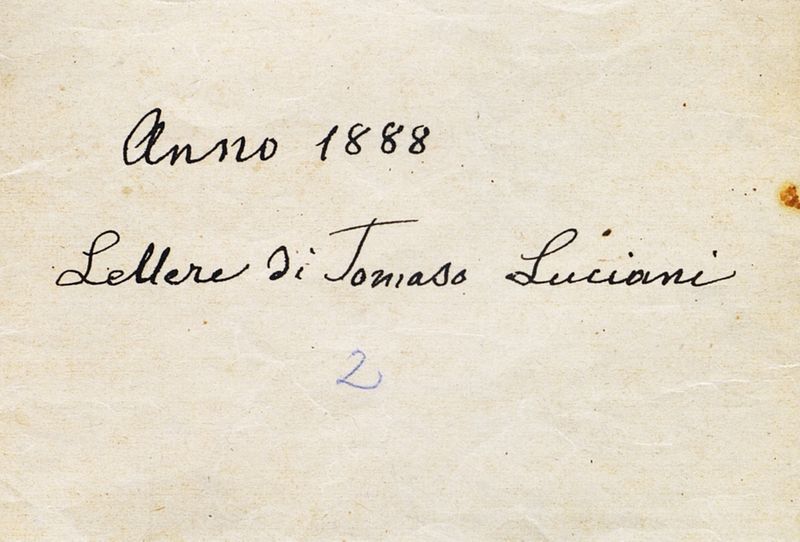 Anno 1888
Lettere di Tomaso Luciani
2